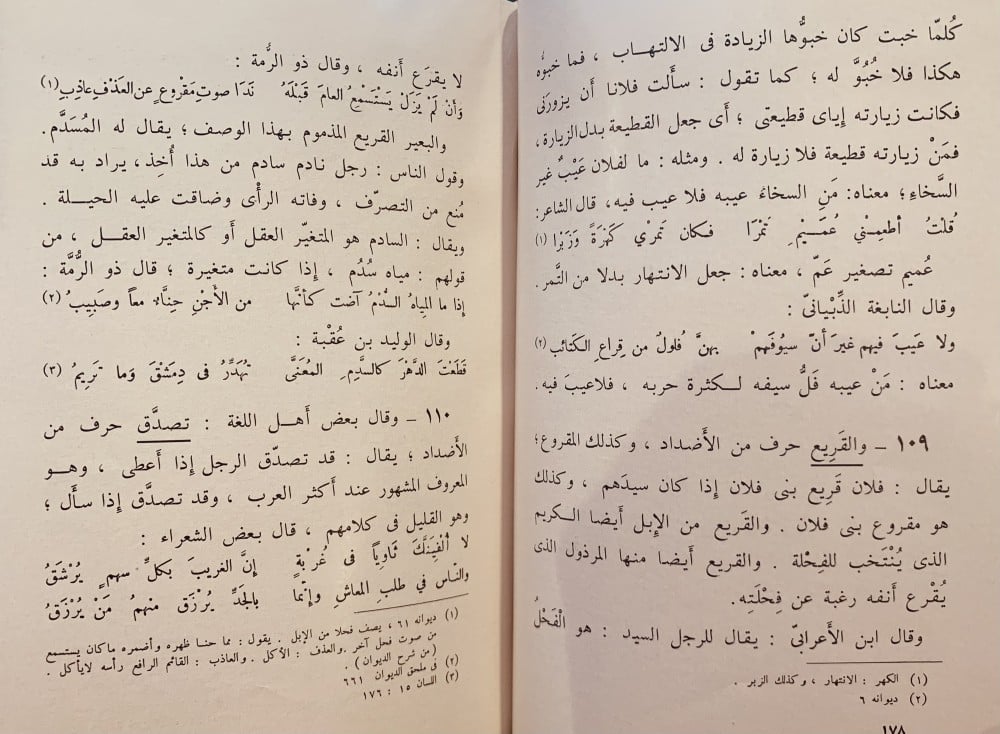 كُلمّا خبت كان خبوُّها الزيادة فى الالتهاب ، فما خبوُّه
هكذا فلا خُبُوَّ له ؛ كما تقول : سأَلت فلانا أَن يزورَنى
فكانت زيارته إِياى قطيعتى ؛ أَى جعل القطيعة بدل الزيارة ،
فمَنْ زيارته قطيعة فلا زيارة له . ومثله : ما لفلان عَيْبٌ غير
السَّخاءِ؛ معناه: مَنِ السخاءُ عيبه فلا عيب فيه، قال الشاعر:
قُلْتُ أَطعِمْنِي عُمَيْمِ تَمْرًا فكان تمرِي كَهْرَةً وَزَبْرا (١)
عُميم تصغير عَمّ ، معناه : جعل الانتهار بدلا من التَّمر .
وقال النابغة الذِّبْيانىّ :
ولا عَيبَ فيهم غيرَ أَنّ سيوُفَهمْ بهنَّ فُلولُ من قِراعِ الكتائبِ (٢)
معناه : مَنْ عيبه فَلُّ سيفه لكثرة حربه ، فلاعيبَ فيه.
١٠٩ ــ والقَرِيع حرف من الأَضداد ، وكذلك المقروع؛
يقال : فلان قَرِيع بنى فلان إِذا كان سيدَهم ، وكذلك
هو مقروع بنى فلان . والقَريع من الإِبل أَيضا الكريم
الذى يُنْتَخب للفِحْلة . والقريع أَيضا منها المرذول الذى
يُقْرع أَنفه رغبة عن فِحْلَتِه.
وقال ابن الأَعرابىّ : يقال للرجل السيد : هو الْفَحْلُ
(١) الكهر : الانتهار ، وكذلك الزبر .
(٢) ديوانه ٦
١٧٨
لا يقرَع أَنفه ، وقال ذو الرُّمة :
وَأَنْ لَمْ يَزَلْ يَسْتَسْمِعُ العامَ قَبْلَهُ نَدَا صوتِ مَقْروعٍ عن العَذْفِ عاذِبِ (١)
والبعير القريع المذموم بهذا الوصف؛ يقال له المُسَدَّم.
وقول الناس : رجل نادم سادم من هذا أُخِذ، يراد به قد
مُنع من التصرّف ، وفاته الرأْى وضاقت عليه الحيلة .
ويقال : السادم هو المتغيّر العقل أَو كالمتغير العقل ، من
قولهم : مياه سُدُم ، إِذا كانت متغيرة ؛ قال ذو الرُّمَّة :
إِذا ما المِياهُ السُّدْمُ آضت كأَنَّها من الأَجْنِ حِنَّاءٌ معاً وصَبِيبُ (٢)
وقال الوليد بن عُقْبة :
قَطَعْتَ الدَّهْرَ كالسَّدِمِ المُعَنَّى تُهَدِّرُ فى دِمَشْقَ وَما تَرِيمُ (٣)
١١٠ ــ وقال بعض أَهل اللغة : تصدَّق حرف من
الأَضداد ؛ يقال : قد تصدّق الرجل إِذا أَعطى ، وهو
المعروف المشهور عند أَكثر العرب ، وقد تصدَّق إِذا سأَل ؛
وهو القليل فى كلامهم ، قال بعض الشعراء :
لا أُلْفِيَنَّكَ ثَاوِياً فى غُرْبةٍ إِنَّ الغريبَ بكلِّ سهمٍ يُرْشَقُ
والنّاس فى طلبِ المعاشِ وإِنّما بالجَدِّ يُرْزَق منهمُ مَنْ يُرْزَقُ
(١) ديوانه ٦١ ، يصف فحلا من الإبل . يقول : مما حنا ظهره وأضمره ماكان يستسمع
من صوت فحل آخر . والعذف : الأكل . والعاذب : القائم الرافع رأسه لايأكل .
(من شرح الديوان) .
(٢) فى ملحق الديوان ٦٦١
(٣) اللسان ١٥ : ١٧٦